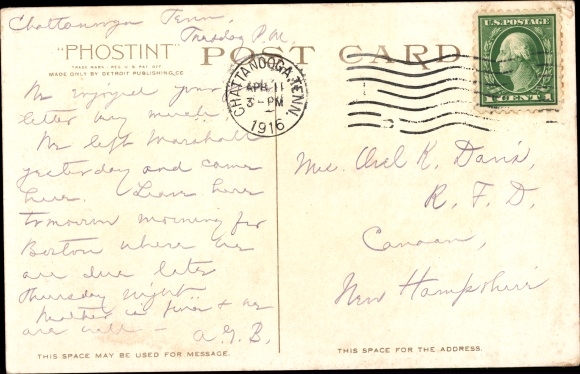 Chattanooga Tenn,
Tuesday P.M.
"PHOSTINT" POST CARD
TRADE MARK - REG. U.S. PAT. OFF.
MADE ONLY BY DETROIT PUBLISHING CO.
U.S. POSTAGE
1 CENT 1
CHATTANOOGA, TENN.
APR 11
3 - PM
1916
We enjoyed your
letter very much.
We left Marshall
yesterday and came
here. Leave here
tomorrow morning for
Boston where we
are due late
Thursday night.
Mother is fine & we
are well -
A.G.B.
K. Davis,
R. F. D.
Canaan,
New Hampshire
THIS SPACE MAY BE USED FOR MESSAGE.
THIS SPACE FOR THE ADDRESS.